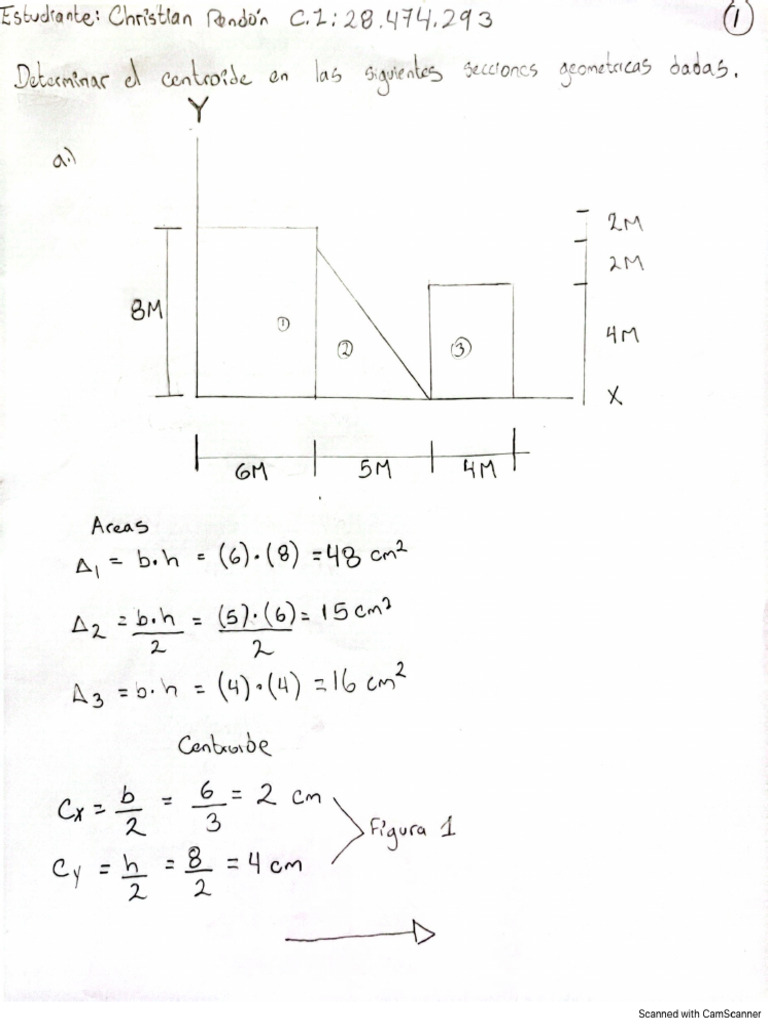 Estudiante: Christian Rondón C.I: 28.474.293 ①
Determinar el centroide en las siguientes secciones geometricas dadas.
Y
a.)
2M
2M
8M
①
②
③
4M
X
6M
5M
4M
Areas
Δ₁ = b.h = (6).(8) = 48 cm²
Δ₂ = b.h/2 = (5).(6)/2 = 15 cm²
Δ₃ = b.h = (4).(4) = 16 cm²
Centroide
Cx = b/2 = 6/3 = 2 cm
Figura 1
Cy = h/2 = 8/2 = 4 cm
Scanned with CamScanner